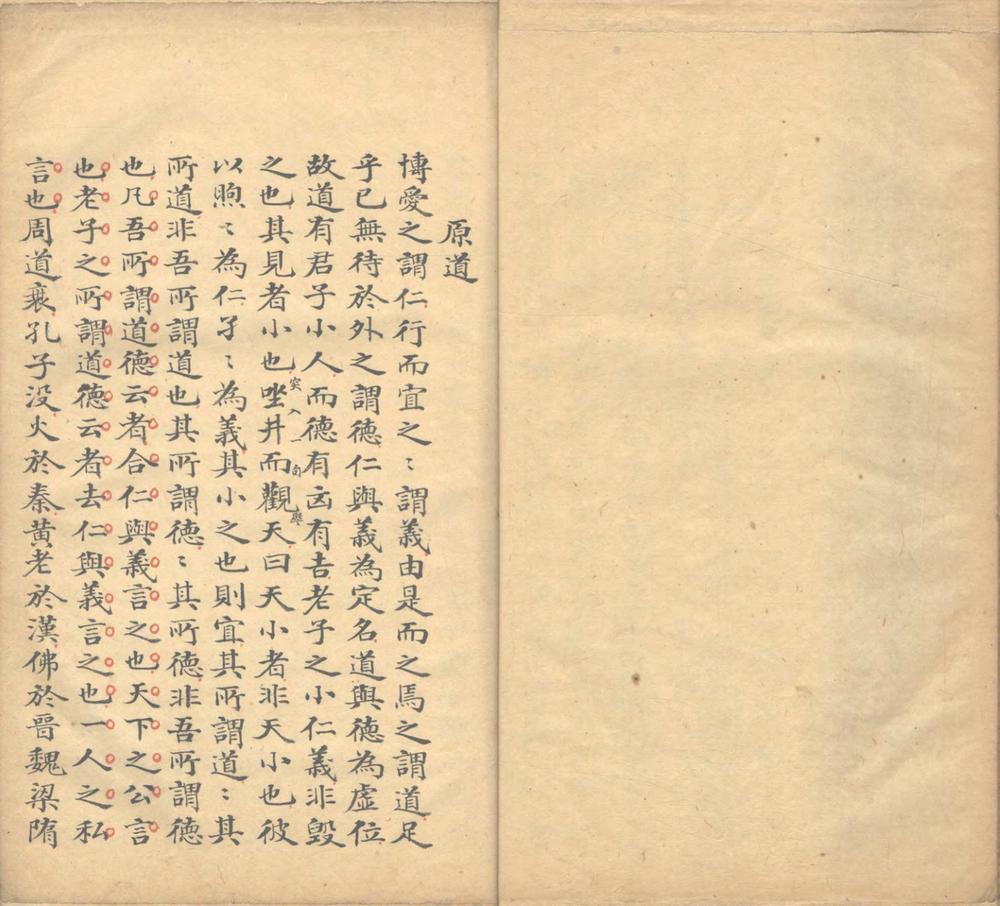 原道
博愛之謂仁行而宜之〻謂義由是而之焉之謂道足
乎已無待於外之謂德仁與義為定名道與德為虛位
故道有君子小人而德有凶有吉老子之小仁義非毀
之也其見者小也坐井而觀天曰天小者非天小也彼
突入一句
以煦〻為仁孑〻為義其小之也則宜其所謂道〻其
所道非吾所謂道也其所謂德〻其所德非吾所謂德
也凡吾所謂道德云者合仁與義言之也天下之公言
也老子之所謂道德云者去仁與義言之也一人之私
言也周道衰孔子没火於秦黄老於漢佛於晉魏梁隋